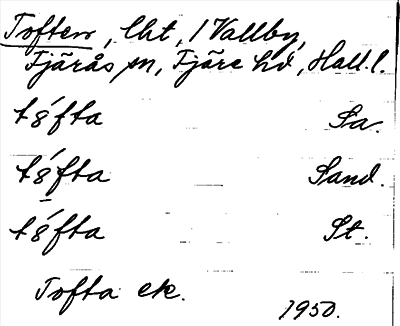 Toften, lht, i Vallby,
Fjärås sn, Fjäre hd, Hall. l.
tǿfta Sa.
tǿfta Sand.
tǿfta St.
Tofta ek.
1950.